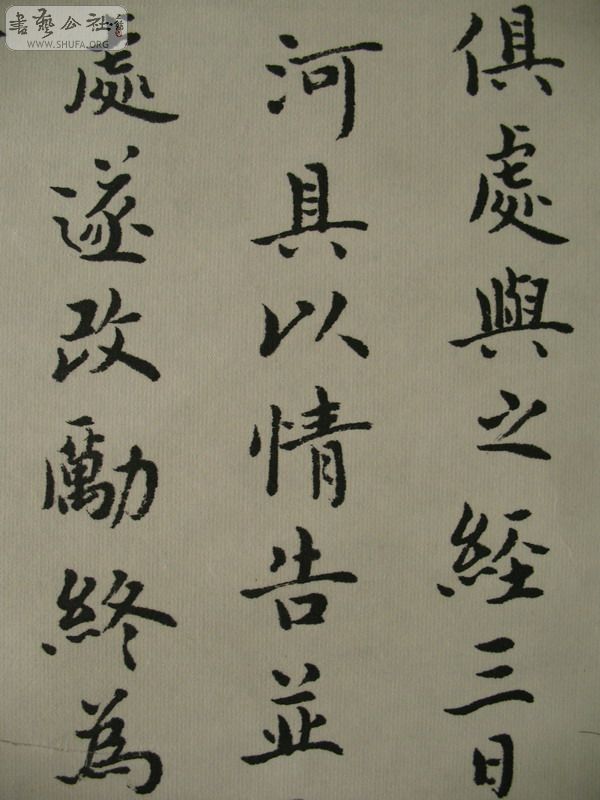 俱處與之經三日
河具以情告並
處遂改勵終為
書藝公社
WWW.SHUFA.ORG